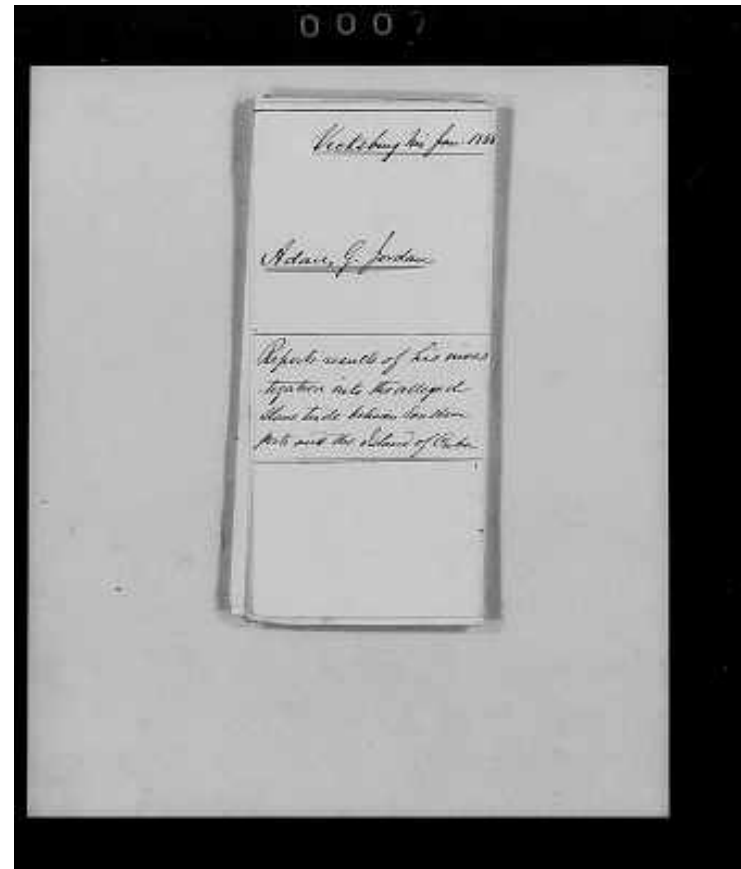 000
Vicksburg Mis Jan. 186
Adam, G. Jordan
Reports results of his inves
tigation into the alleged
Slave trade between Southern
Ports and the Island of Cuba